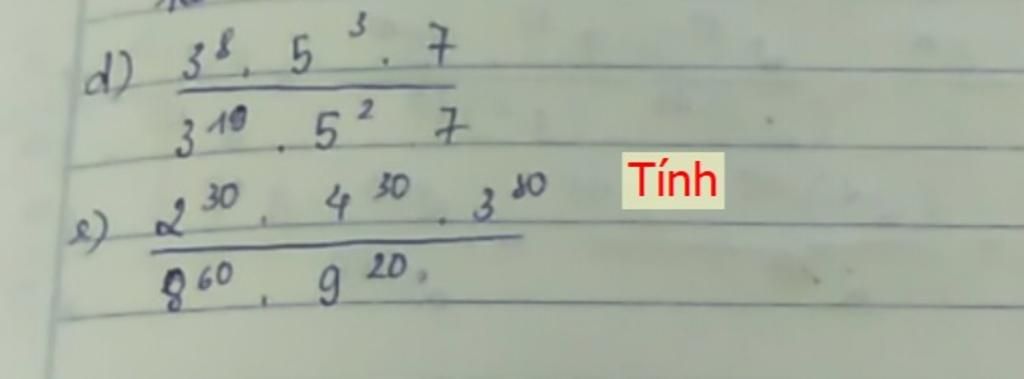 d) 3^8 . 5^3 . 7
3^10 . 5^2 7
e) 2^30 . 4^30 . 3^80
8^60 . 9^20 .
Tính